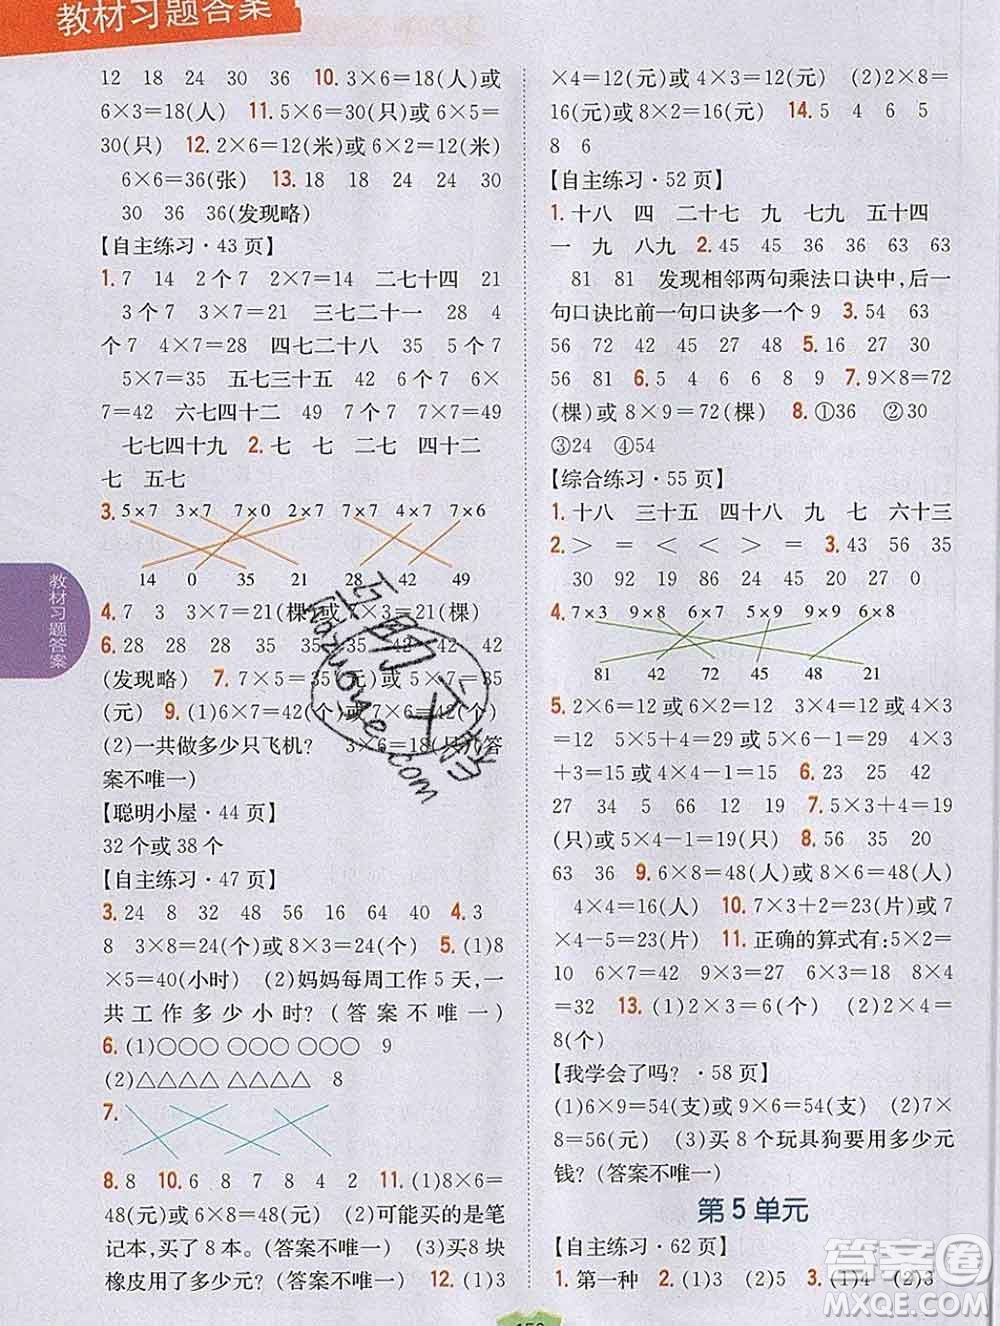 教材习题答案
12 18 24 30 36 10. 3×6=18(人)或
6×3=18(人) 11. 5×6=30(只)或6×5=
30(只) 12. 2×6=12(米)或6×2=12(米)
6×6=36(张) 13. 18 18 24 24 30
30 36 36(发现略)
【自主练习·43页】
1. 7 14 2个7 2×7=14 二七十四 21
3个7 3×7=21 三七二十一 28 4
个7 4×7=28 四七二十八 35 5个7
5×7=35 五七三十五 42 6个7 6×
7=42 六七四十二 49 7个7 7×7=49
七七四十九 2. 七 七 二七 四十二
七 五七
3. 5×7 3×7 7×0 2×7 7×7 4×7 7×6
14 0 35 21 28 42 49
4. 7 3 3×7=21(棵)或7×3=21(棵)
6. 28 28 28 35 35 35 42 42 42
(发现略) 7. 7×5=35(元)或5×7=35
(元) 9. (1)6×7=42(个)或7×6=42(个)
(2)一共做多少只飞机? 3×6=18(只)(答
案不唯一)
【聪明小屋·44页】
32个或38个
【自主练习·47页】
3. 24 8 32 48 56 16 64 40 4. 3
8 3×8=24(个)或8×3=24(个) 5. (1)8
×5=40(小时) (2)妈妈每周工作5天,一
共工作多少小时?(答案不唯一)
6. (1)○○○ ○○○ ○○○ 9
(2)△△△△ △△△△ 8
7.
8. 8 10. 6 8 7 8 4 2 11. (1)8×6=
48(元)或6×8=48(元) (2)可能买的是笔
记本,买了8本。(答案不唯一) (3)买8块
橡皮用了多少元?(答案不唯一) 12. (1)3
×4=12(元)或4×3=12(元) (2)2×8=
16(元)或8×2=16(元) 14. 5 4 6 5
8 6
【自主练习·52页】
1. 十八 四 二十七 九 七九 五十四
一 九 八九 2. 45 45 36 36 63 63
81 81 发现相邻两句乘法口诀中,后一
句口诀比前一句口诀多一个9 3. 54 63
72 45 5. 27 18 45 72 54 9 30
56 81 6. 5 4 6 6 8 9 7. 9×8=72
(棵)或8×9=72(棵) 8. ①36 ②30
③24 ④54
【综合练习·55页】
1. 十八 三十五 四十八 九 七 六十三
2. > = < < > = 3. 45 56 35
30 86 31 22 20 27 0 93
4. 7×3 9×8 6×7 5×9 9×9 6×8
81 42 72 45 48 21
5. 2×6=12或6×2=12 3×4=12或4×3=
12 5×5+4=29或6×5-1=29 4×8
+3=35或5×8-5=35 6. 23 12 42
27 34 15 81 20 7. 5×3+4=19
(只)或5×4-1=19(只) 8. 56 35 20
63 36 9. 8×6=48(人)或6×8=48(人)
4×4=16(人) 10. 7×3+2=23(片)或7
×4-5=23(片) 11. 正确的算式有:5×2=
10 6×7=42 3×6=18 8×4
=32 13. (1)2×3=6(个) (2)2×4=
8(个)
【我学会了吗?·58页】
(1)6×9=54(支)或9×6=54(支) (2)7×
8=56(元) (3)买8个玩具狗要用多少元
钱?(答案不唯一)
第5单元
【自主练习·62页】
1. 第一种 2. (1)3 (2)5 3. (1)4 (2)3
教材习题答案
答案圈
MXQE.COM